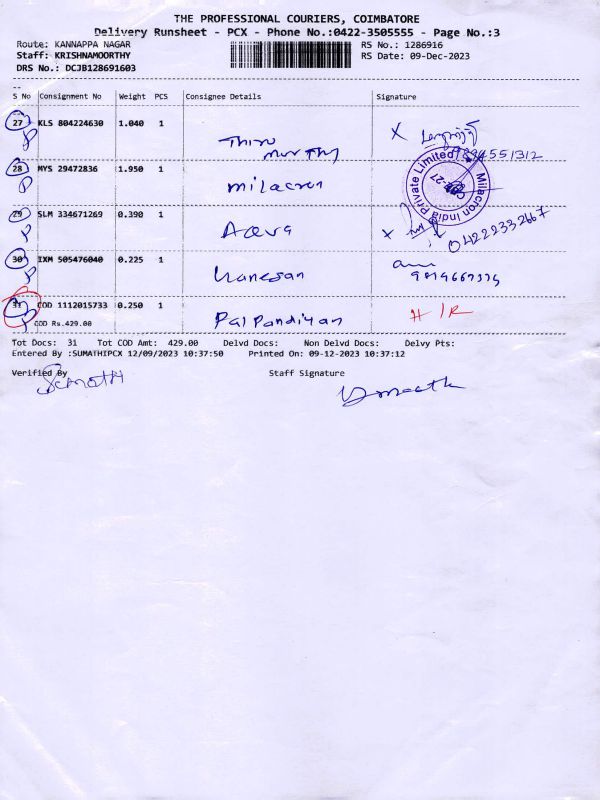 THE PROFESSIONAL COURIERS, COIMBATORE
Delivery Runsheet - PCX - Phone No.:0422-3505555 - Page No.:3
Route: KANNAPPA NAGAR
Staff: KRISHNAMOORTHY
DRS No.: DCJB128691603
RS No.: 1286916
RS Date: 09-Dec-2023
S No Consignment No Weight PCS Consignee Details Signature
27 KLS 804224630 1.040 1 Thiru murthy X
9894551312
28 MYS 29472836 1.950 1 milacron
Milacron India Private Limited
29 SLM 334671269 0.390 1 X
04222332667
30 IXM 505476040 0.225 1
31 COD 1112015733 0.250 1 Pal Pandiyan
COD Rs.429.00
Tot Docs: 31 Tot COD Amt: 429.00 Delvd Docs: Non Delvd Docs: Delvy Pts:
Entered By :SUMATHIPCX 12/09/2023 10:37:50 Printed On: 09-12-2023 10:37:12
Verified By Staff Signature